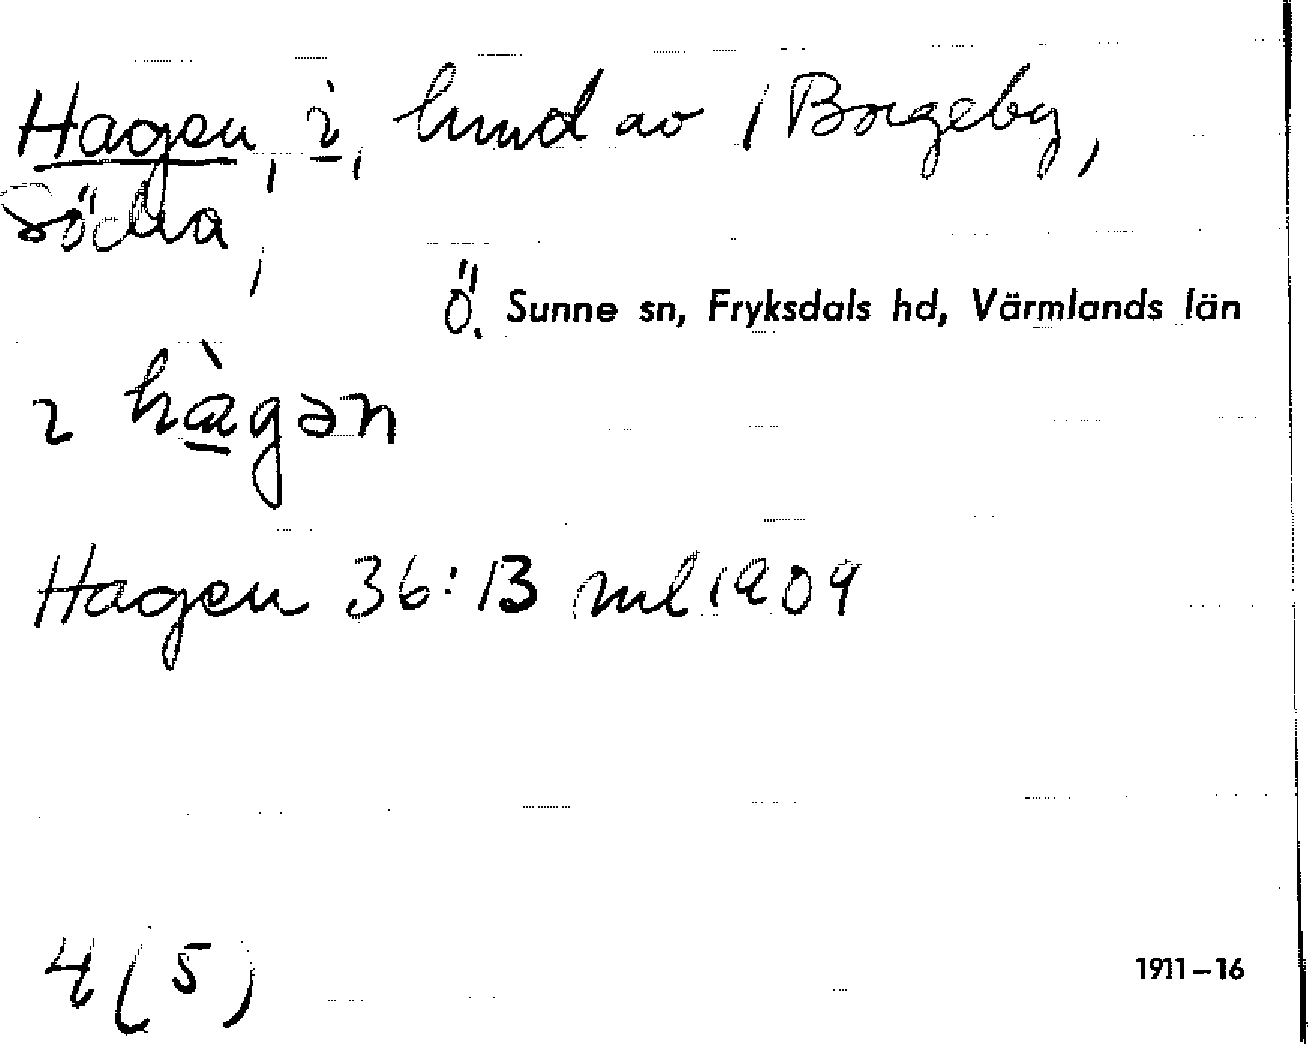 Hagen, i, lund av / Borgeby,
Södra,
Ö. Sunne sn, Fryksdals hd, Värmlands län
ı hàgən
Hagen 36:13 ml 1909
4 (5)
1911–16